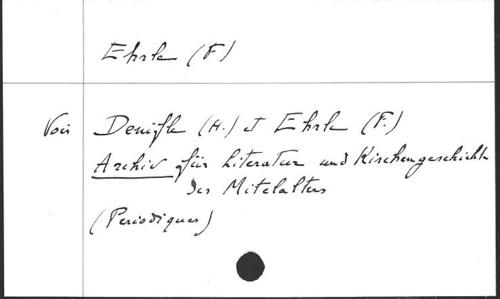 Ehrle (F)
Voir Denifle (H.) et Ehrle (F.)
Archiv für Literatur und Kirchengeschichte
des Mitelalters
(Periodiques)